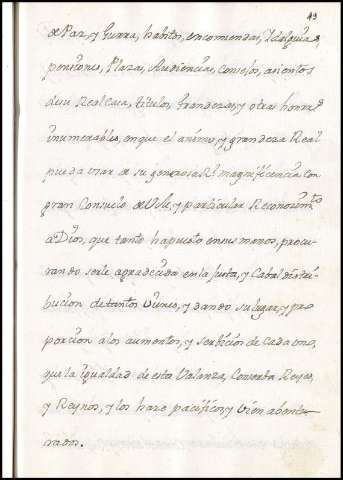 43
de Paz, y Guerra, habitos, encomiendas, Idalguias,
pensiones, Plazas, Audiencias, conselos, asientos
de su Real Casa, titulos, Grandezas, y otras honras
innumerables, en que el animo, y grandeza Real
pueda usar de su generosa Rl. magnificencia con
gran Consuelo de Usle, y particular Reconosimto.
a Dios, que tanto ha puesto en sus manos, procu-
rando serle agradecida en la Justa, y Cabal distri-
bucion de tantos vienes, y dando su lugar, y pro
porcion a los aumentos, y serbicios de cada uno,
que la igualdad de esta Valanza, Conserba Reyes,
y Reynos, y los haze pacificos, y vien abentu-
rados.